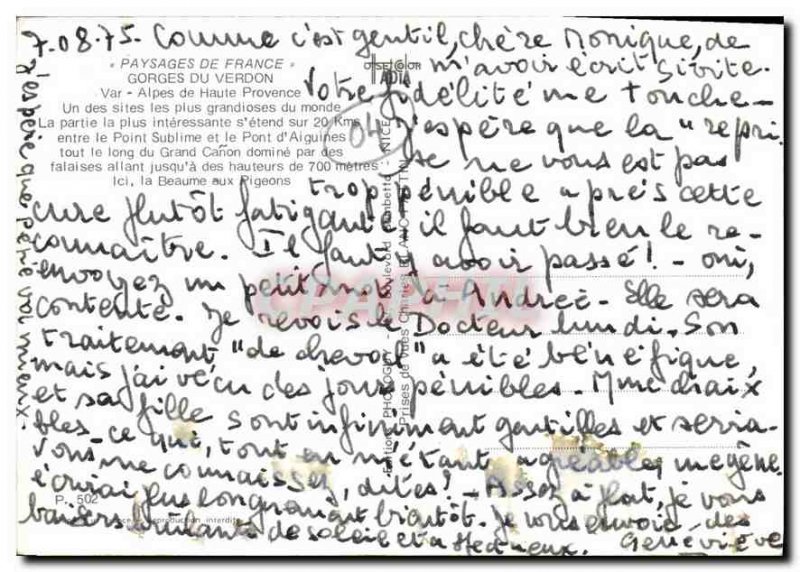 7.08.75. Comme c'est gentil, chère Monique, de
m'avoir écrit si vite.
« PAYSAGES DE FRANCE »
GORGES DU VERDON
Var - Alpes de Haute Provence
Un des sites les plus grandioses du monde
La partie la plus intéressante s'étend sur 20 Kms
entre le Point Sublime et le Pont d'Aiguines
tout le long du Grand Cañon dominé par des
falaises allant jusqu'à des hauteurs de 700 mètres
Ici, la Beaume aux Pigeons
04
Votre fidélité me touche -
J'espère que la "repri-
se ne vous est pas
trop pénible après cette
cure plutôt fatigante, il faut bien le re-
connaître. Il faut y avoir passé! - oui,
envoyez un petit mot à Andrée - Elle sera
contente. Je revois le Docteur lundi. Son
traitement "de cheval" a été bénéfique,
mais j'ai vécu des jours pénibles. Mme
et sa fille sont infiniment gentilles et servia-
bles - ce qui, tout en m'étant agréable, me gêne.
Vous me connaissez, dites! - Assez à plat, je vous
écrirai plus longuement bientôt. Je vous envoie des
baisers brûlants de soleil et affectueux. Geneviève
j'espère que père va mieux -
P. 502
reproduction interdite
Editions PHOTOGUY - Boulevard Gambetta - NICE
Prises de Vues Christian BLANC MARTINI
CPAPHIL